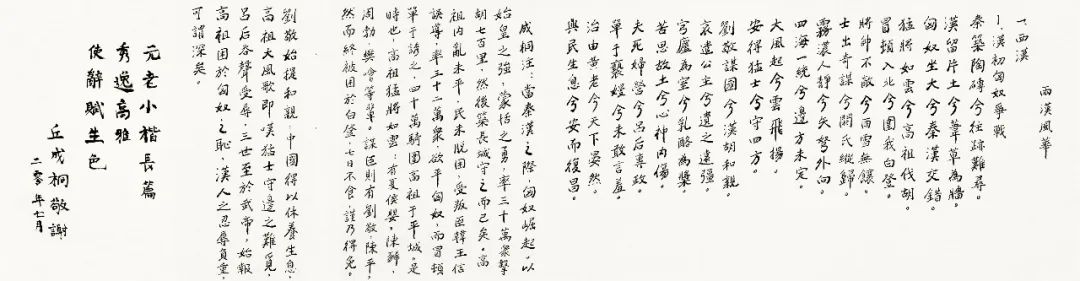 兩漢風華
一、西漢
1.漢初匈奴爭戰
秦築陶磚兮往跡難尋。
漢留片土兮葦草為牆。
匈奴坐大兮秦漢交錯。
猛將如雲兮高祖伐胡。
冒頓入北兮圍我白登。
將帥不敵兮雨雪無糧。
士出奇謀兮閼氏縱歸。
霧濃人靜兮矢弩外向。
四海一統兮邊方未定。
大風起兮雲飛揚。
安得猛士兮守四方。
劉敬謀國兮漢胡和親。
哀遣公主兮遺之遠疆。
穹廬為室兮乳酪為漿。
苦思故土兮心神內傷。
夫死婦營兮呂后專政。
單于褻嫚兮未敢言羞。
治由黃老兮天下晏然。
與民生息兮安而復昌。
成桐注：當秦漢之際，匈奴崛起，以
始皇之強，蒙恬之勇，率三十萬眾擊
胡七百里，然後築長城守之而已矣。高
祖內亂未平，民未脫困，受叛臣韓王信
誤導，率三十二萬眾，欲平匈奴，而冒頓
單于誘之，四十萬騎圍高祖于平城。是
時也，高祖猛將如雲：有夏侯嬰，陳豨，
周勃，樊噲等輩。謀臣則有劉敬，陳平，
然而終被困於白登，七日不食，謹乃得免。
劉敬始提和親，中國得以休養生息，
高祖大風歌即嘆猛士守邊之難覓，
呂后吞聲受辱，三世至於武帝，始報
高祖困於匈奴之恥，漢人之忍辱負重，
可謂深矣。
元老小楷長篇
秀逸高雅
使辭賦生色
丘成桐敬謝
二零年七月